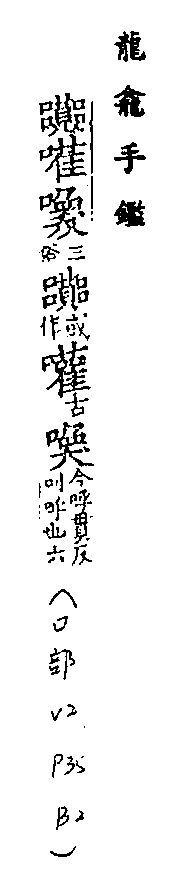 龍龕手鑑
三俗 或作 嚾古 喚今呼貫反叫呼也六
(口部 V2 P35 B2)